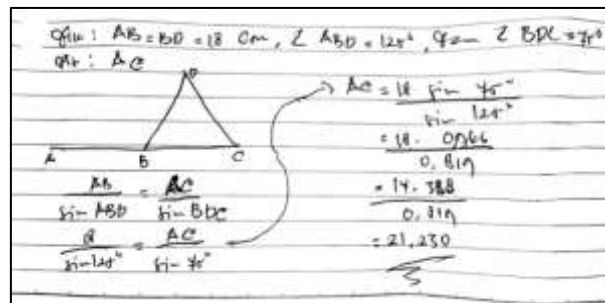 AB = BD = 18 cm, ∠ ABD = 125°, ∠ BDC = 75°
AC
D
A B C
AB / sin ABD = AC / sin BDC
/ sin 125° = AC / sin 75°
AC = 18 sin 75° / sin 125°
= 18 . 0,966 / 0,819
= 17.388 / 0,819
= 21,230